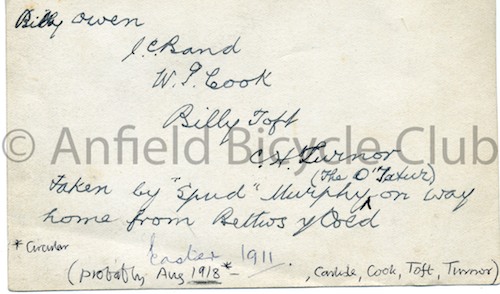 Billy Owen
J.C. Band
W.P. Cook
Billy Toft
© Anfield Bicycle Club
C.H. Turnor
(The O'Tatur)
taken by "Spud" Murphy, on way
home from Bettws y Coed
* Circular
Easter 1911.
(probably Aug 1918* -
, Carlisle, Cook, Toft, Turnor)